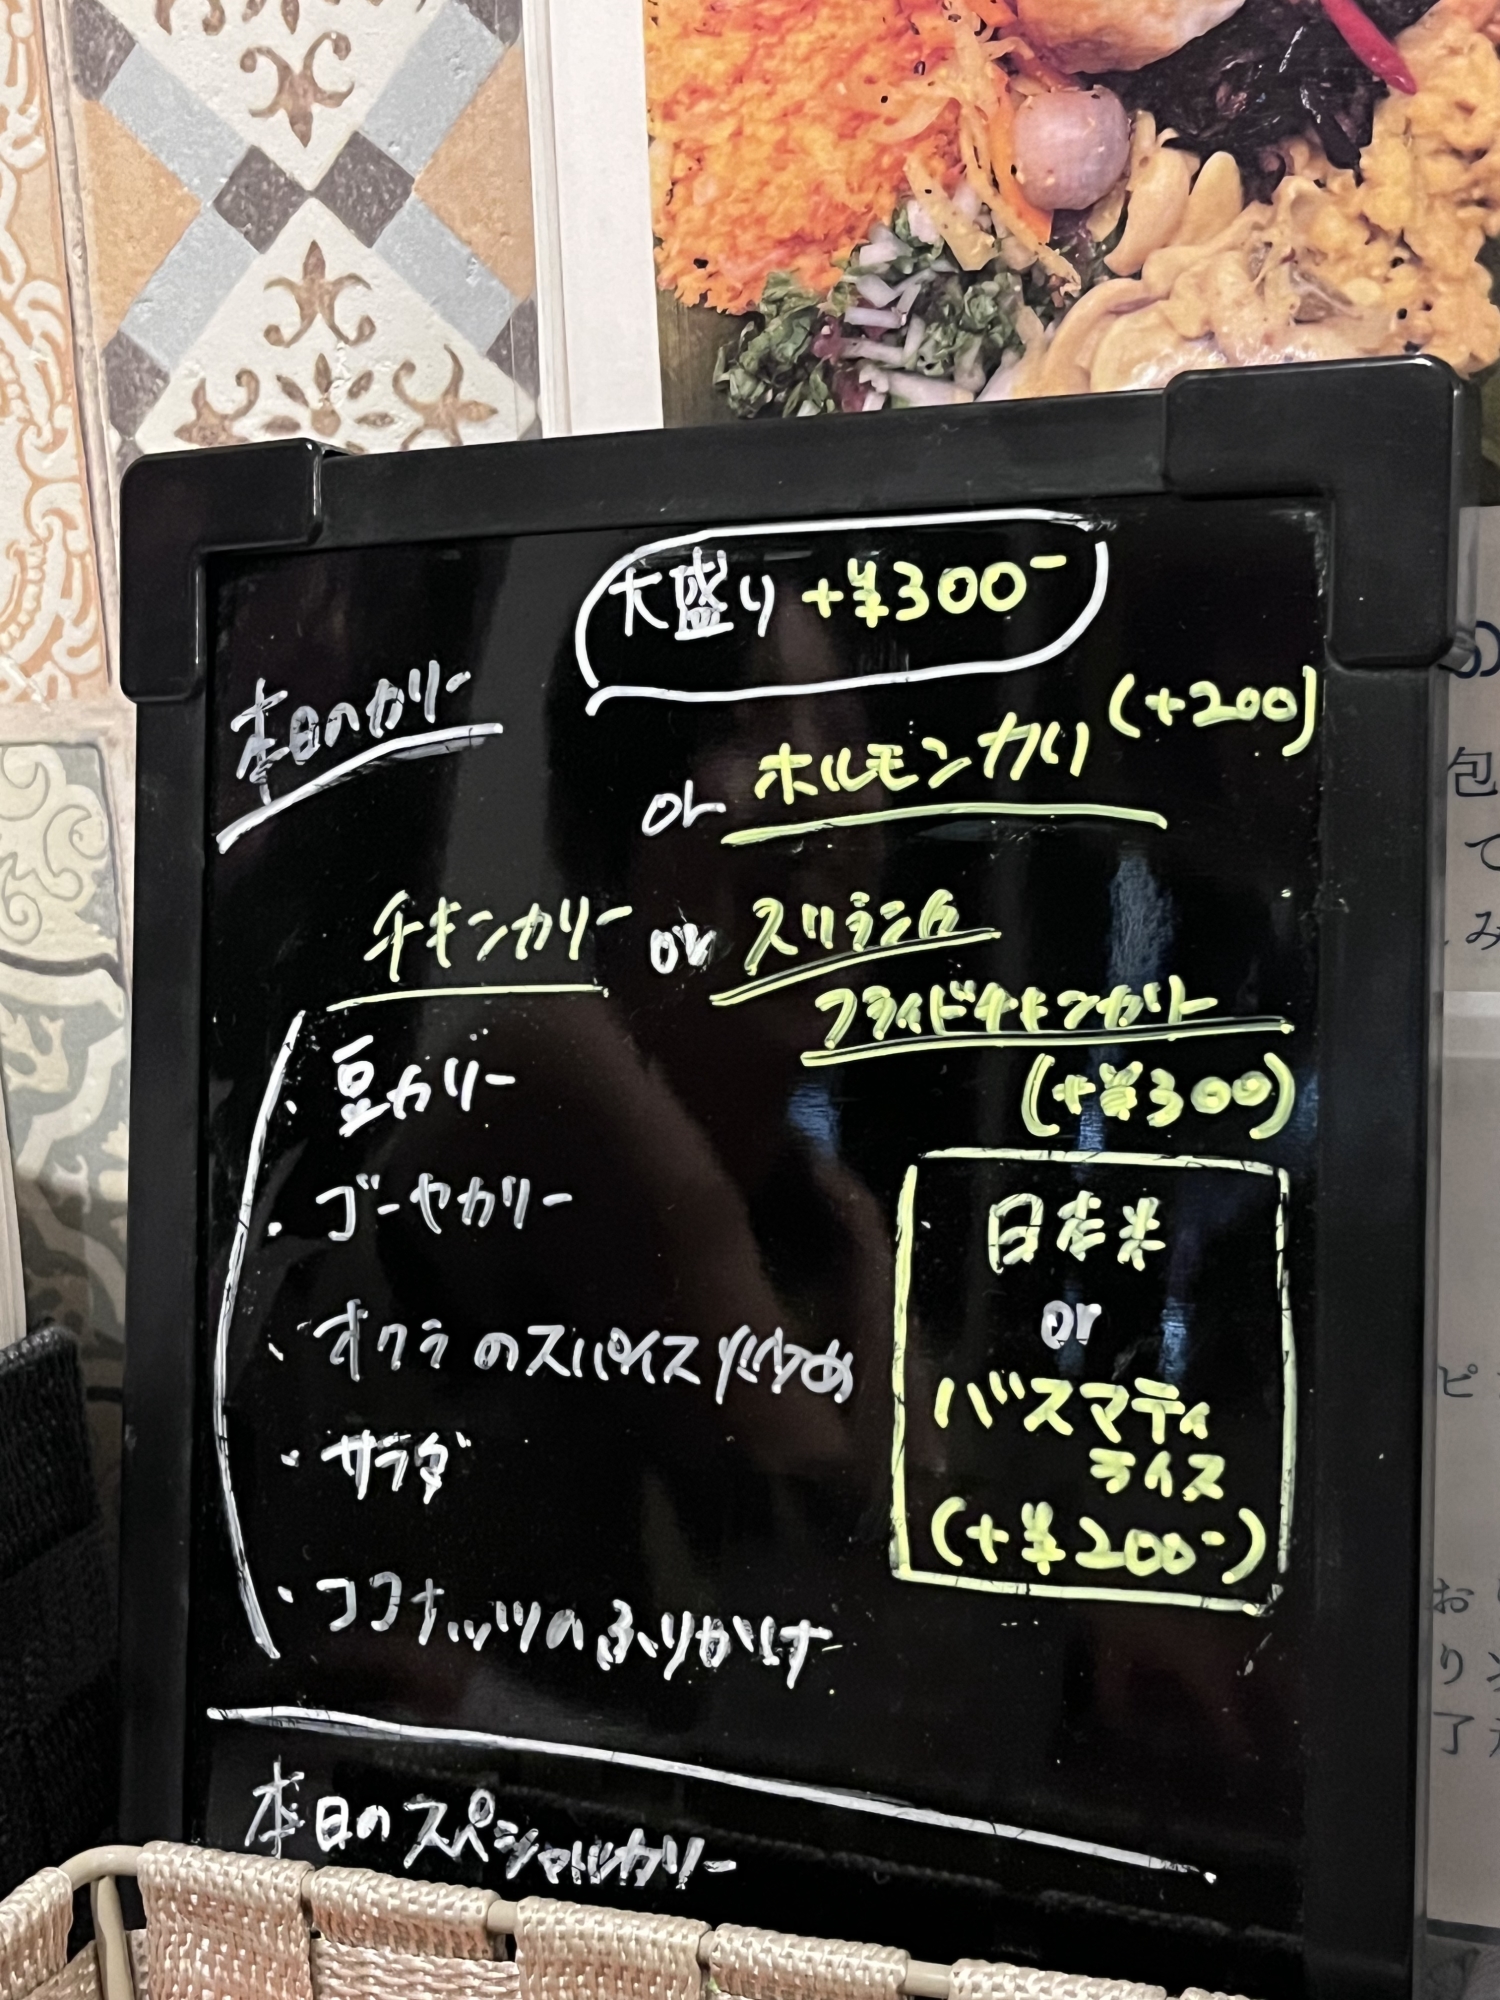 大盛り +¥300-
本日のカリー
or ホルモンカリー (+200)
チキンカリー or スリランカ
フライドチキンカリー
(+¥300)
・豆カリー
・ゴーヤカリー
・オクラのスパイス炒め
・サラダ
・ココナッツのふりかけ
日本米
or
バスマティ
ライス
(+¥200-)
本日のスペシャルカリー
の
包
て
み
ピ
お
り
了